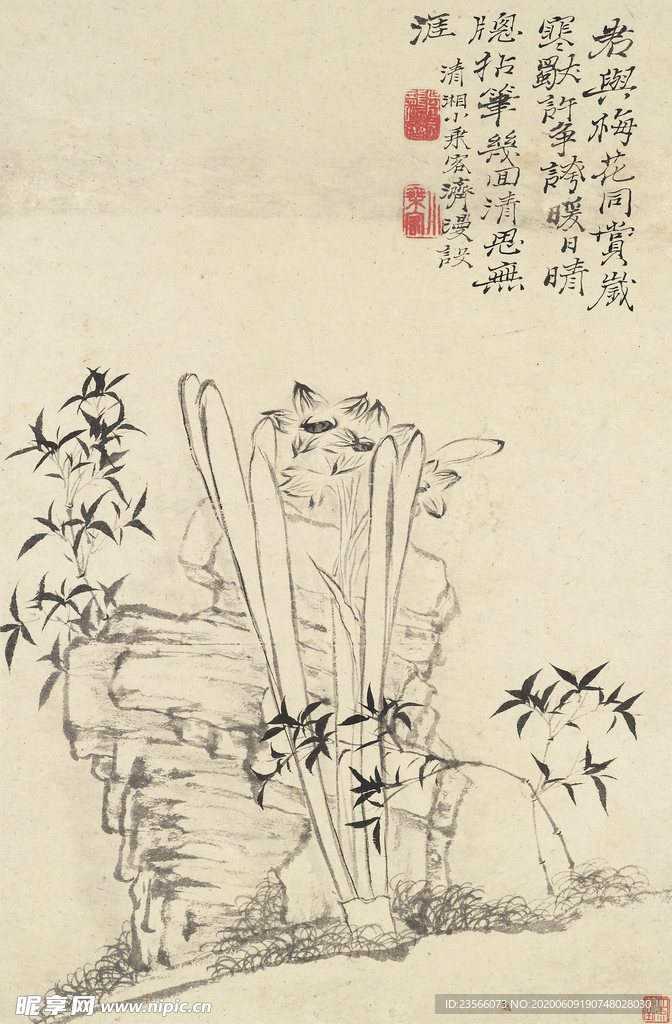 君與梅花同賞歲
寒獻許爭誇暖日晴
牕拈筆幾回清思無
涯
清湘小乘客濟漫設
昵享网 www.nipic.cn
ID:23566073 NO:20200609190748028030